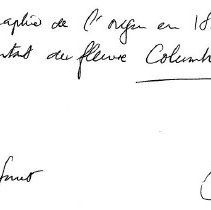 raphie de l'Oregon en 18
du fleuve Columb
Smet